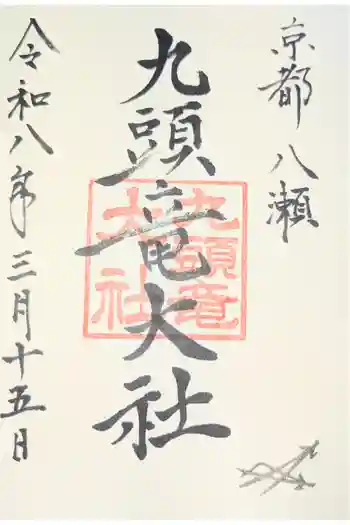 京都 八瀬
九頭竜大社
九頭竜
大社
令和八年三月十五日